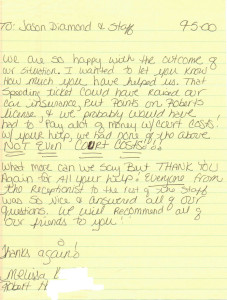 TO: Jason Diamond & Staff 9-5-00
We are so happy with the outcome of
our situation. I wanted to let you know
How much you have helped us. That
Speeding ticket could have raised our
car insurance, Put Points on Roberts
license, & we probably would have
had to Pay alot of money w/court costs.
w/your help, we had none of the above
NOT EVEN COURT COSTS!!!
What more can we say But THANK YOU
Again for All your help. Everyone from
the Receptionist to the rest of the Staff
was so nice & answered all of our
questions. We will recommend all of
our friends to you!
Thanks again!
Melissa
Robert H